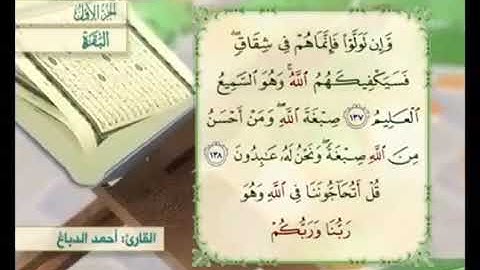 الجزء الأول
البقرة
وَّإِن تَوَلَّوْا۟ فَإِنَّمَا هُمْ فِى شِقَاقٍۢ ۖ
فَسَيَكْفِيكَهُمُ ٱللَّهُ ۚ وَهُوَ ٱلسَّمِيعُ
ٱلْعَلِيمُ ١٣٧ صِبْغَةَ ٱللَّهِ ۖ وَمَنْ أَحْسَنُ
مِنَ ٱللَّهِ صِبْغَةًۭ ۖ وَنَحْنُ لَهُۥ عَـٰبِدُونَ ١٣٨
قُلْ أَتُحَآجُّونَنَا فِى ٱللَّهِ وَهُوَ
رَبُّنَا وَرَبُّكُمْ
القارئ: أحمد الدباغ